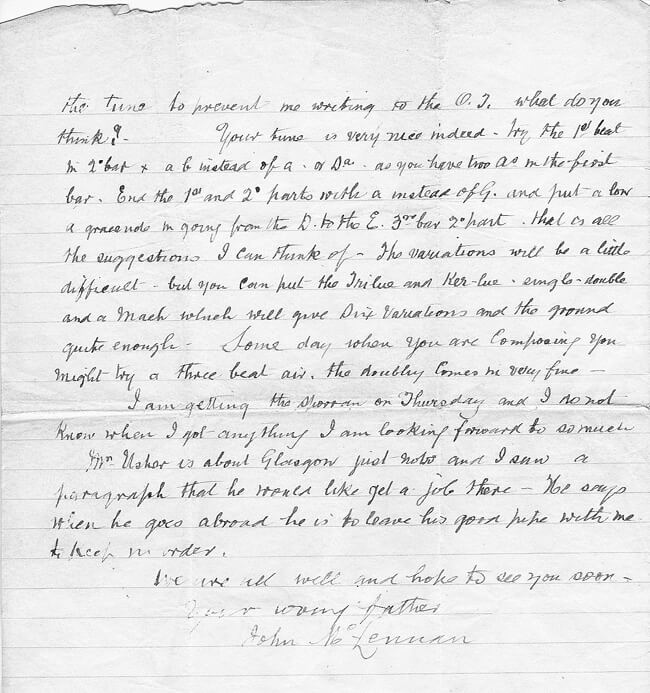 the tune to prevent me writing to the O. T. what do you
think? Your tune is very nice indeed - try the 1st beat
in 2d bar x a b instead of a. or Das. as you have two As in the first
bar. End the 1st and 2d parts with a instead of G. and put a low
a gracenote in going from the D. to the E. 3rd bar 2d part. that is all
the suggestions I can think of - The variations will be a little
difficult - but you can put the Trilue and Ker-lue - single - double
and a Mach which will give Six Variations and the ground
quite enough - Some day when you are Composing you
might try a three beat air. the doubling Comes in very fine -
I am getting the sporran on Thursday and I do not
Know when I got anything I am looking forward to so much
Mr Usher is about Glasgow just now and I saw a
paragraph that he would like get a job there - He says
when he goes abroad he is to leave his good pipe with me
to keep in order.
We are all well and hope to see you soon -
Your loving father
John McLennan